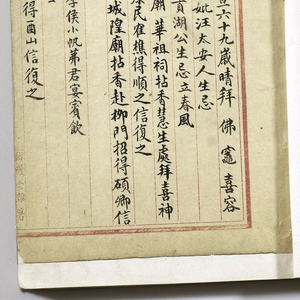 六十九歲晴拜 佛竈 喜容
妣汪太安人生忌
貢湖公生忌立春風
廟 華祖祠拈香慧生處拜喜神
民崔樵得順之信復之
城隍廟拈香赴柳門招得碩卿信
侯小帆茀君宴賓飲
得酉山信復之